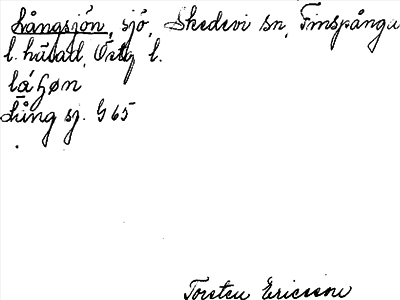 Långsjön, sjö, Skedevi sn, Finspånga
l. härad, Östg l.
låʃøn
Lång sj. G 65
Torsten Ericsson